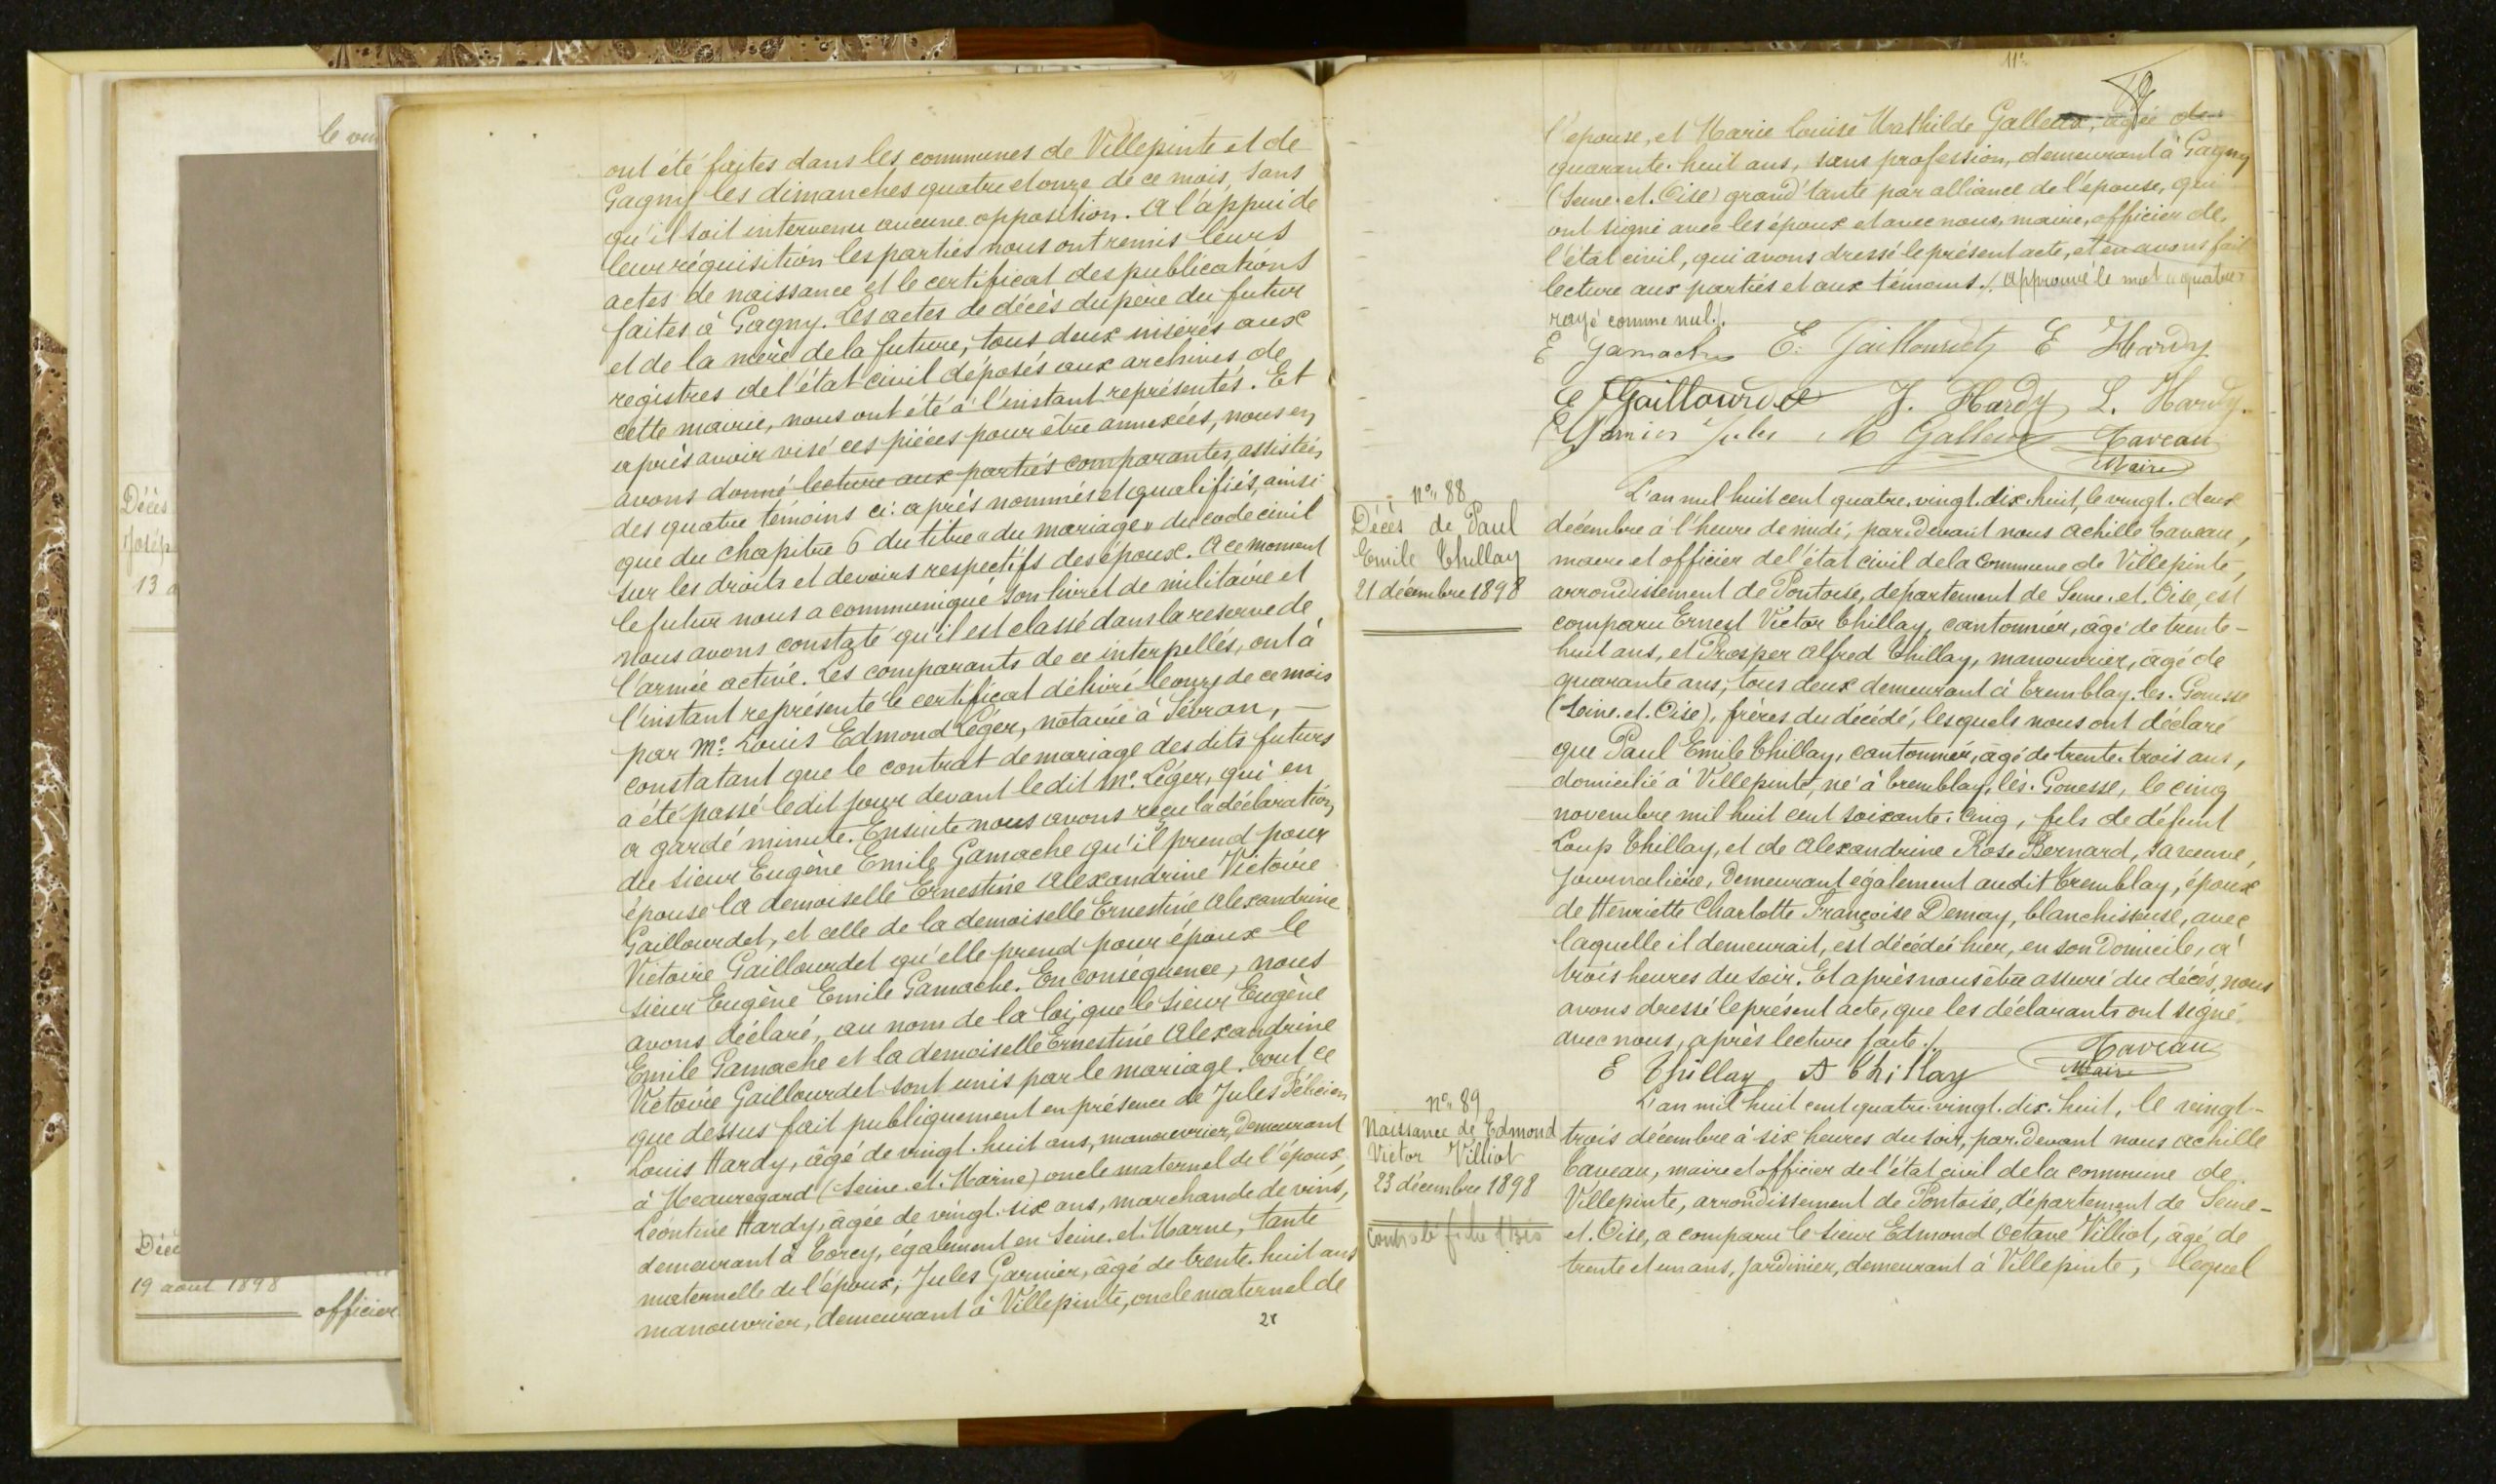 le vin
Décès
Josép
13 a
Décè
19 août 1898
officier
ont été faites dans les communes de Villepinte et de
Gagny les dimanches quatre et onze de ce mois, sans
qu'il soit intervenu aucune opposition. A l'appui de
leur réquisition les parties nous ont remis leurs
actes de naissance et le certificat des publications
faites à Gagny. Les actes de décès du père du futur
et de la mère de la future, tous deux insérés aux
registres de l'état civil déposés aux archives de
cette mairie, nous ont été à l'instant représentés. Et
après avoir visé ces pièces pour être annexées, nous en
avons donné lecture aux parties comparantes, assistées
des quatre témoins ci-après nommés et qualifiés, ainsi
que du chapitre 6 du titre « du mariage » du code civil
sur les droits et devoirs respectifs des époux. A ce moment
le futur nous a communiqué son livret de militaire et
nous avons constaté qu'il est classé dans la réserve de
l'armée active. Les comparants de ce interpellés, ont à
l'instant représenté le certificat délivré le onze de ce mois
par Me Louis Edmond Léger, notaire à Sévran, —
constatant que le contrat de mariage desdits futurs
a été passé ledit jour devant ledit Me Léger, qui en
a gardé minute. Ensuite nous avons reçu la déclaration
du sieur Eugène Emile Gamache qu'il prend pour
épouse la demoiselle Ernestine Alexandrine Victoire
Gaillourdet, et celle de la demoiselle Ernestine Alexandrine
Victoire Gaillourdet qu'elle prend pour époux le
sieur Eugène Emile Gamache. En conséquence, nous
avons déclaré, au nom de la loi, que le sieur Eugène
Emile Gamache et la demoiselle Ernestine Alexandrine
Victoire Gaillourdet sont unis par le mariage. Tout ce
que dessus fait publiquement en présence de Jules Félicien
Louis Hardy, âgé de vingt-huit ans, manouvrier, demeurant
à Meauregard (Seine-et-Marne) oncle maternel de l'époux,
Léontine Hardy, âgée de vingt-six ans, marchande de vins,
demeurant à Torcy, également en Seine-et-Marne, tante
maternelle de l'époux; Jules Garnier, âgé de trente-huit ans
manouvrier, demeurant à Villepinte, oncle maternel de
l'épouse, et Marie Louise Mathilde Galleux, âgée de
quarante-huit ans, sans profession, demeurant à Gagny
(Seine-et-Oise) grand'tante par alliance de l'épouse, qui
ont signé avec les époux et avec nous, maire, officier de
l'état civil, qui avons dressé le présent acte, et en avons fait
lecture aux parties et aux témoins./. Approuvé le mot « quatre »
rayé comme nul./.
E Gamache E. Gaillourdet E Hardy
E Gaillourdet J. Hardy L. Hardy
Garnier Jules M Galleux Taveau
Maire
No. 88
Décès de Paul
Emile Thillay
21 décembre 1898
L'an mil huit cent quatre-vingt-dix-huit, le vingt-deux
décembre à l'heure de midi, par-devant nous Achille Taveau,
maire et officier de l'état civil de la commune de Villepinte,
arrondissement de Pontoise, département de Seine-et-Oise, est
comparu Ernest Victor Thillay, cantonnier, âgé de trente-
huit ans, et Prosper Alfred Thillay, manouvrier, âgé de
quarante ans, tous deux demeurant à Tremblay-les-Gonesse
(Seine-et-Oise), frères du décédé, lesquels nous ont déclaré
que Paul Emile Thillay, cantonnier, âgé de trente-trois ans,
domicilié à Villepinte, né à Tremblay-lès-Gonesse, le cinq
novembre mil huit cent soixante-cinq, fils de défunt
Loup Thillay, et de Alexandrine Rose Bernard, sa veuve,
journalière, demeurant également audit Tremblay, époux
de Henriette Charlotte Françoise Demay, blanchisseuse, avec
laquelle il demeurait, est décédé hier, en son domicile, à
trois heures du soir. Et après nous être assuré du décès, nous
avons dressé le présent acte, que les déclarants ont signé
avec nous, après lecture faite./.
E Thillay A Thillay Taveau
Maire
No. 89
Naissance de Edmond
Victor Villiot
23 décembre 1898
L'an mil huit cent quatre-vingt-dix-huit, le vingt-
trois décembre à six heures du soir, par-devant nous Achille
Taveau, maire et officier de l'état civil de la commune de
Villepinte, arrondissement de Pontoise, département de Seine-
et-Oise, a comparu le sieur Edmond Octave Villiot, âgé de
trente et un ans, jardinier, demeurant à Villepinte, lequel